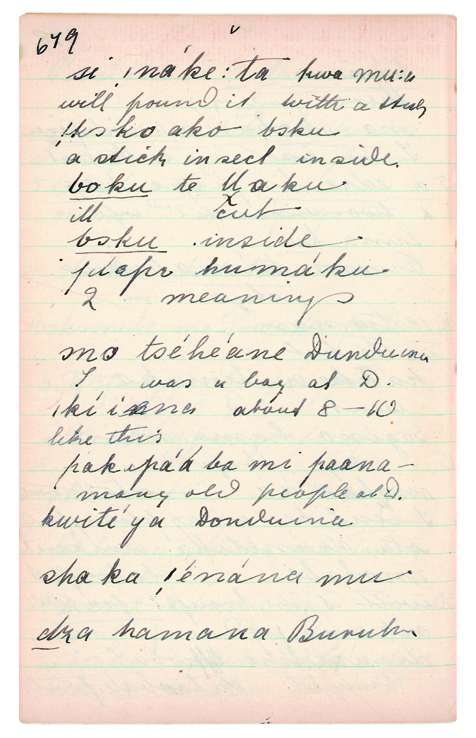 679
si ǀnáke: ta kwa mu:u
will pound it with a
ako bsku
a stick insect inside.
boku te Uaku
ill cut
bsku inside
píepe humáku
2 meanings
mo tséhéáne Dunduina
I was a boy at D.
ikíiana about 8-10
like this
pakapáá ba mi paana-
many old people at D.
kwité ya Donduina
shaka ǃénána mu
dza hamana